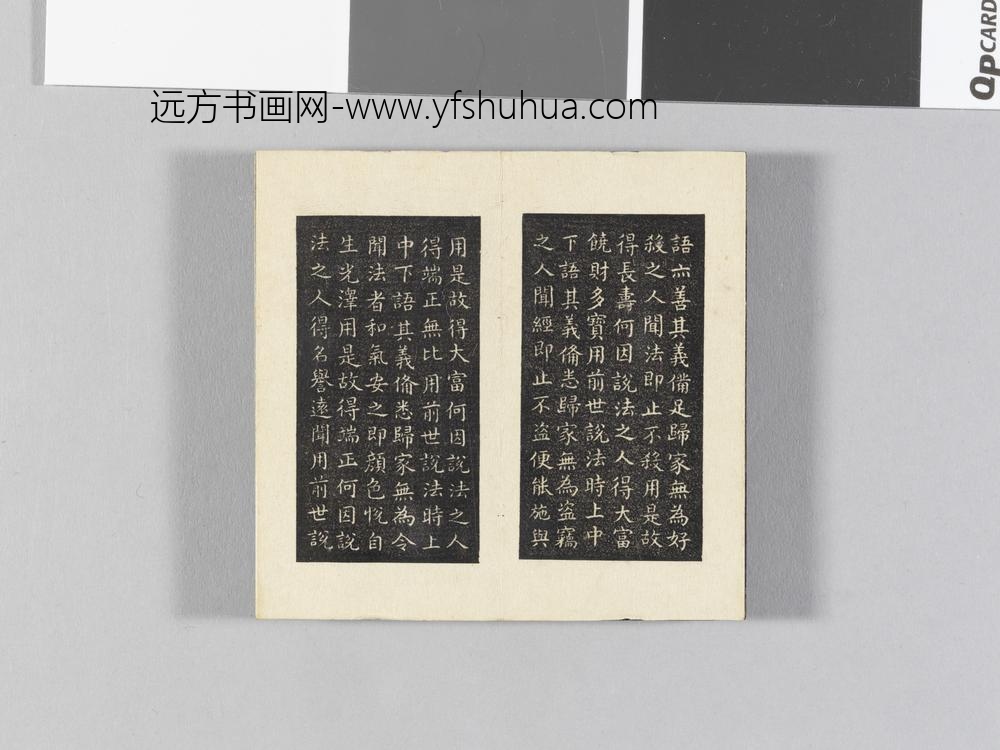 QPCARD
远方书画网-www.yfshuhua.com
語亦善其義備足歸家無為好
殺之人聞法即止不殺用是故
得長壽何因說法之人得大富
饒財多寶用前世說法時上中
下語其義備悉歸家無為盜竊
之人聞經即止不盜便能施與
用是故得大富何因說法之人
得端正無比用前世說法時上
中下語其義備悉歸家無為令
聞法者和氣安之即顏色悅自
生光澤用是故得端正何因說
法之人得名譽遠聞用前世說